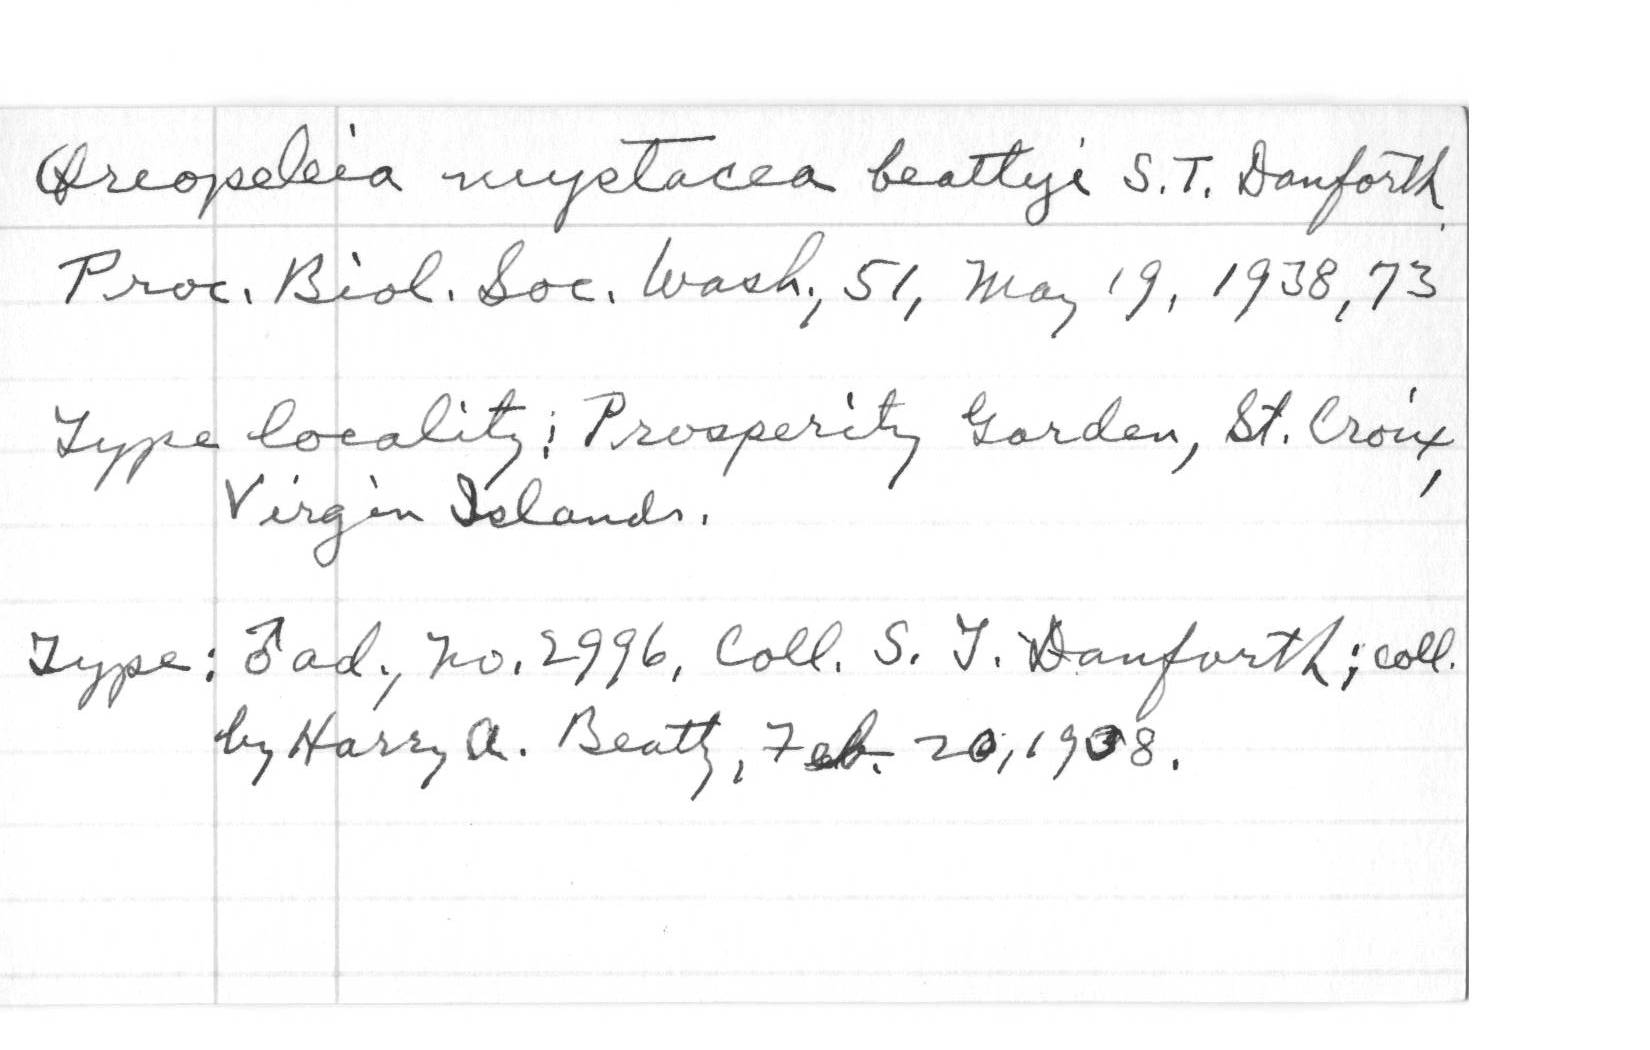 Oreopeleia mystacea beattyi S.T. Danforth.
Proc. Biol. Soc. Wash., 51, May 19, 1938, 73
Type locality: Prosperity Garden, St. Croix,
Virgin Islands.
Type: ♂ ad., No. 2996, Coll. S. T. Danforth; coll.
by Harry A. Beatty, Feb. 20, 1938.